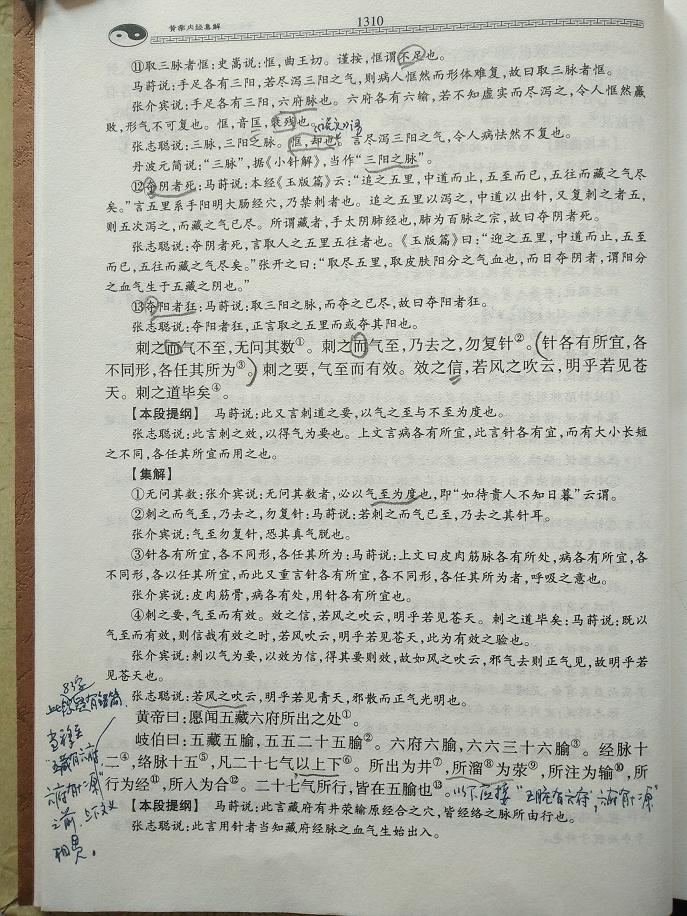 黄帝内经集解
1310
⑪取三脉者恇:史嵩说:恇,曲王切。谨按,恇谓不足也。
马莳说:手足各有三阳,若尽泻三阳之气,则病人恇然而形体难复,故曰取三脉者恇。
张介宾说:手足各有三阳,六府脉也。六府各有六输,若不知虚实而尽泻之,令人恇然羸
败,形气不可复也。恇,音匡,衰残也。
《说文》语
张志聪说:三脉,三阳之脉。恇,却也。言尽泻三阳之气,令人病怯然不复也。
丹波元简说:“三脉”,据《小针解》,当作“三阳之脉”。
⑫夺阴者死:马莳说:本经《玉版篇》云:“迫之五里,中道而止,五至而已,五往而藏之气尽
矣。”言五里系手阳明大肠经穴,乃禁刺者也。迫之五里以泻之,中道以出针,又复刺之者五,
则五次泻之,而藏之气已尽。所谓藏者,手太阴肺经也,肺为百脉之宗,故曰夺阴者死。
张志聪说:夺阴者死,言取人之五里五往者也。《玉版篇》曰:“迎之五里,中道而止,五至
而已,五往而藏之气尽矣。”张开之曰:“取尽五里,取皮肤阳分之气血也,而曰夺阴者,谓阳分
之血气生于五藏之阴也。”
⑬夺阳者狂:马莳说:取三阳之脉,而夺之已尽,故曰夺阳者狂。
张志聪说:夺阳者狂,正言取之五里而或夺其阳也。
刺之而气不至,无问其数①。刺之而气至,乃去之,勿复针②。针各有所宜,各
不同形,各任其所为③。刺之要,气至而有效。效之信,若风之吹云,明乎若见苍
天。刺之道毕矣④。
【本段提纲】 马莳说:此又言刺道之要,以气之至与不至为度也。
张志聪说:此言刺之效,以得气为要也。上文言病各有所宜,此言针各有宜,而有大小长短
之不同,各任其所宜而用之也。
【集解】
①无问其数:张介宾说:无问其数者,必以气至为度也,即“如待贵人不知日暮”云谓。
②刺之而气至,乃去之,勿复针:马莳说:若刺之而气已至,乃去之其针耳。
张介宾说:气至勿复针,恐其真气脱也。
③针各有所宜,各不同形,各任其所为:马莳说:上文曰皮肉筋脉各有所处,病各有所宜,各
不同形,各以任其所宜,而此又重言针各有所宜,各不同形,各任其所为者,呼吸之意也。
张介宾说:皮肉筋骨,病各有处,用针各有所宜也。
④刺之要,气至而有效。效之信,若风之吹云,明乎若见苍天。刺之道毕矣:马莳说:既以
气至而有效,则信哉有效之时,若风吹云,明乎若见苍天,此为有效之验也。
张介宾说:刺以气为要,以效为信,得其要则效,故如风之吹云,邪气去则正气见,故明乎若
见苍天也。
张志聪说:若风之吹云,明乎若见青天,邪散而正气光明也。
黄帝曰:愿闻五藏六府所出之处①。
岐伯曰:五藏五腧,五五二十五腧②。六府六腧,六六三十六腧③。经脉十
二④,络脉十五⑤,凡二十七气以上下⑥。所出为井⑦,所溜⑧为荥⑨,所注为输⑩,所
行为经⑪,所入为合⑫。二十七气所行,皆在五腧也⑬。
以下应接“五脏有六府,六府有十二原”
【本段提纲】 马莳说:此言藏府有井荥输原经合之穴,皆经络之脉所由行也。
张志聪说:此言用针者当知藏府经脉之血气生始出入。
83字
当移至
“五藏有六府
六府有十二原”
之前,上下文义
相贯。